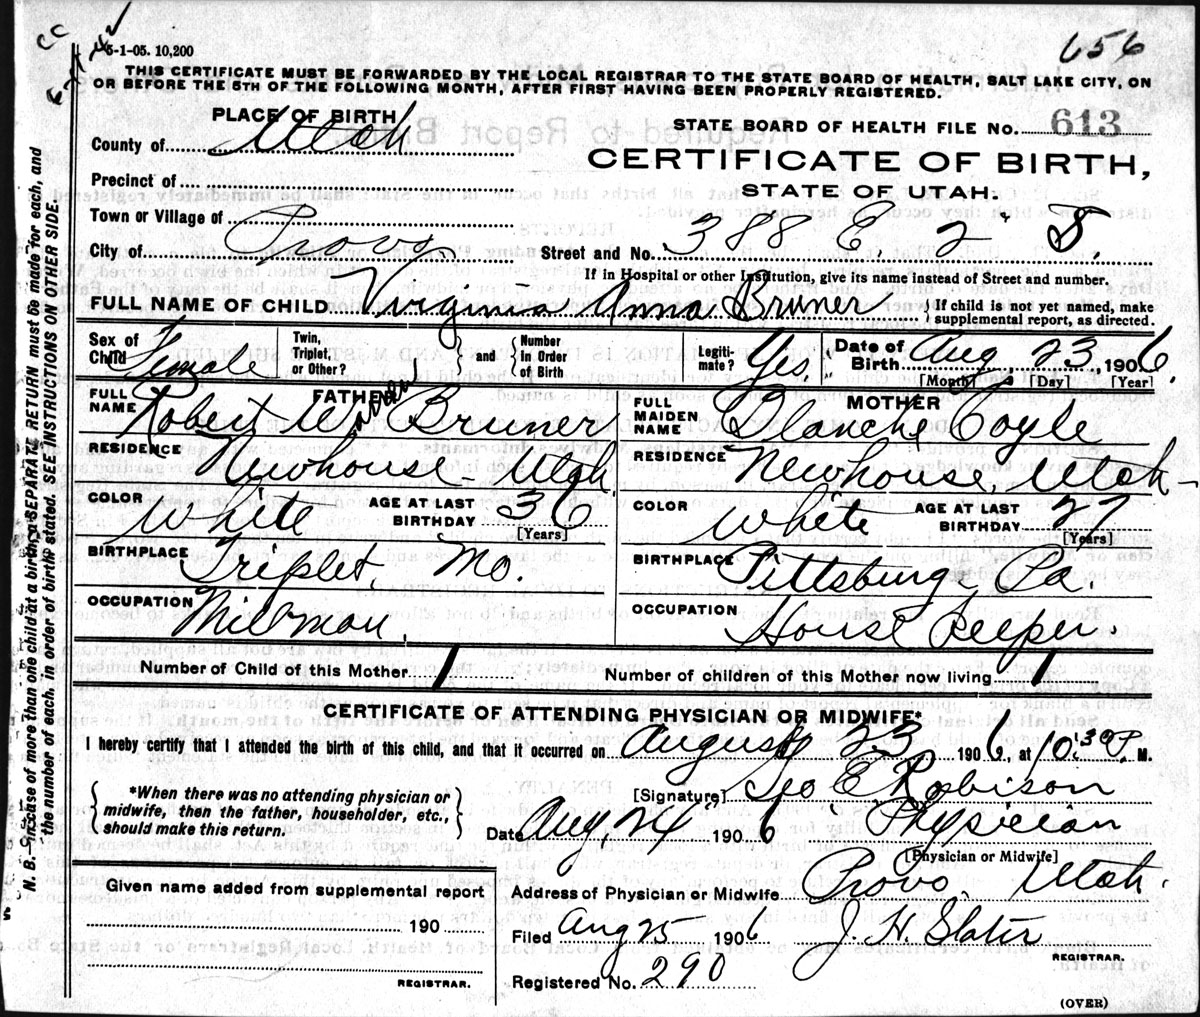 CC
6-1-42
5-1-05. 10,200
656
THIS CERTIFICATE MUST BE FORWARDED BY THE LOCAL REGISTRAR TO THE STATE BOARD OF HEALTH, SALT LAKE CITY, ON
OR BEFORE THE 5TH OF THE FOLLOWING MONTH, AFTER FIRST HAVING BEEN PROPERLY REGISTERED.
PLACE OF BIRTH
County of Utah
Precinct of
Town or Village of
City of Provo
STATE BOARD OF HEALTH FILE NO. 613
CERTIFICATE OF BIRTH,
STATE OF UTAH.
Street and No. 388 E. 2 S.
If in Hospital or other Institution, give name instead of street and number.
FULL NAME OF CHILD Virginia Anna Bruner { If child is not yet named, make
supplemental report, as directed.
Sex of Child Female
Twin, Triplet, or Other? } and { Number in Order of Birth
Legiti-mate? Yes.
Date of Birth Aug. 23, 1906.
[Month] [Day] [Year]
FATHER
FULL NAME Robert Bruner
RESIDENCE Newhouse - Utah.
COLOR White AGE AT LAST BIRTHDAY 36
[Years]
BIRTHPLACE Triplet, Mo.
OCCUPATION Millman.
MOTHER
FULL MAIDEN NAME Blanche Coyle
RESIDENCE Newhouse, Utah -
COLOR White AGE AT LAST BIRTHDAY 27
[Years]
BIRTHPLACE Pittsburg Pa.
OCCUPATION House Keeper.
Number of Child of this Mother 1 Number of children of this Mother now living 1
CERTIFICATE OF ATTENDING PHYSICIAN OR MIDWIFE*
I hereby certify that I attended the birth of this child, and that it occurred on August 23 1906, at 10:30 P. M.
{ *When there was no attending physician or
midwife, then the father, householder, etc.,
should make this return. }
[Signature] Geo E. Robison
Date Aug 24 1906 Physician
[Physician or Midwife]
Given name added from supplemental report
190
REGISTRAR.
Address of Physician or Midwife Provo, Utah.
Filed Aug 25 1906 J. H. Slater
REGISTRAR.
Registered No. 290
(OVER)
N. B.—In case of more than one child at a birth, a SEPARATE RETURN must be made for each, and
the number of each, in order of birth, stated. SEE INSTRUCTIONS ON OTHER SIDE.